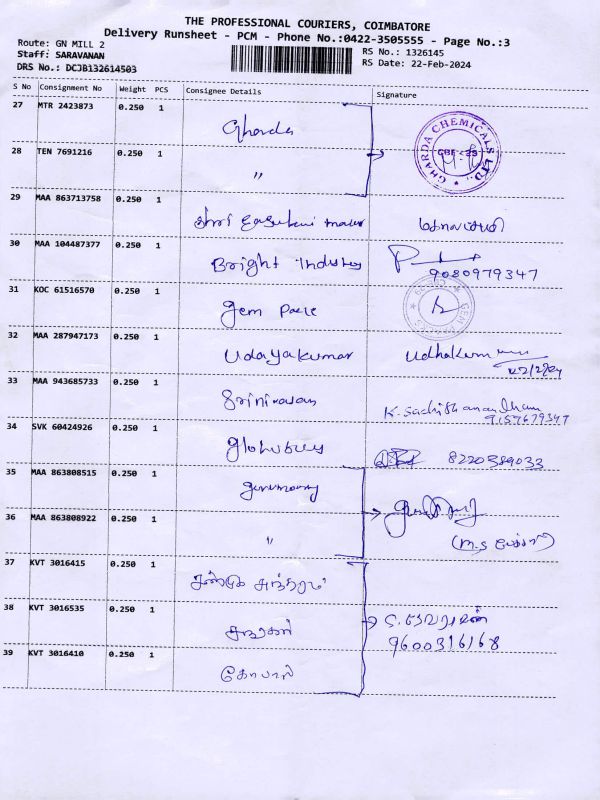 THE PROFESSIONAL COURIERS, COIMBATORE
Delivery Runsheet - PCM - Phone No.:0422-3505555 - Page No.:3
Route: GN MILL 2
Staff: SARAVANAN
DRS No.: DCJB132614503
RS No.: 1326145
RS Date: 22-Feb-2024
S No Consignment No Weight PCS Consignee Details Signature
27 MTR 2423873 0.250 1 Gharda
GHARDA CHEMICALS LTD.
28 TEN 7691216 0.250 1 "
29 MAA 863713758 0.250 1 Shri
30 MAA 104487377 0.250 1 Bright
9080979347
31 KOC 61516570 0.250 1 Gem
32 MAA 287947173 0.250 1 Udayakumar
33 MAA 943685733 0.250 1 Srinivasan
K. Sachithanandham
9157679347
34 SVK 60424926 0.250 1
8220389033
35 MAA 863808515 0.250 1
36 MAA 863808922 0.250 1 "
37 KVT 3016415 0.250 1
38 KVT 3016535 0.250 1
9600316168
39 KVT 3016410 0.250 1 கோபால்